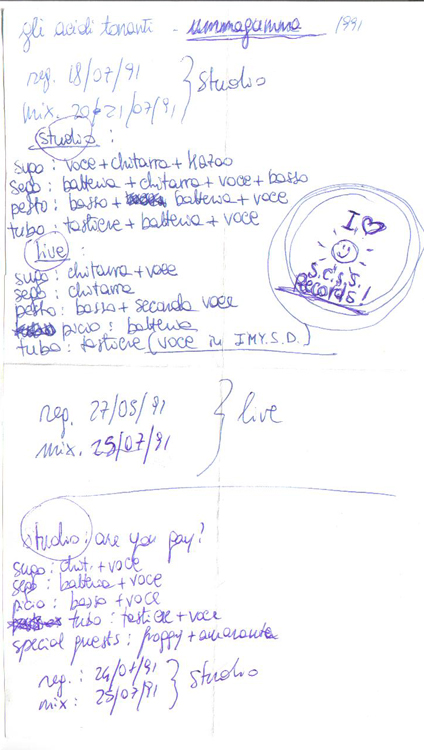 gli acidi tonanti - ummagamma 1991
reg. 18/07/91
mix. 20-21/07/91 } studio
studio :
sugo : voce + chitarra + kazoo
sego : batteria + chitarra + voce + basso
pesto : basso + batteria + voce
tubo : tastiere + batteria + voce
live :
sugo : chitarra + voce
sego : chitarra
pesto : basso + seconda voce
picio : batteria
tubo : tastiere (voce in I.M.Y.S.D.)
I ♡
S.C.S.S.
Records!
reg. 27/05/91
mix. 25/07/91 } live
studio : are you gay?
sugo : chit. + voce
sego : batteria + voce
picio : basso + voce
tubo : tastiere + voce
special guests : froggy + amaranta
reg. : 24/07/91
mix : 25/07/91 } studio